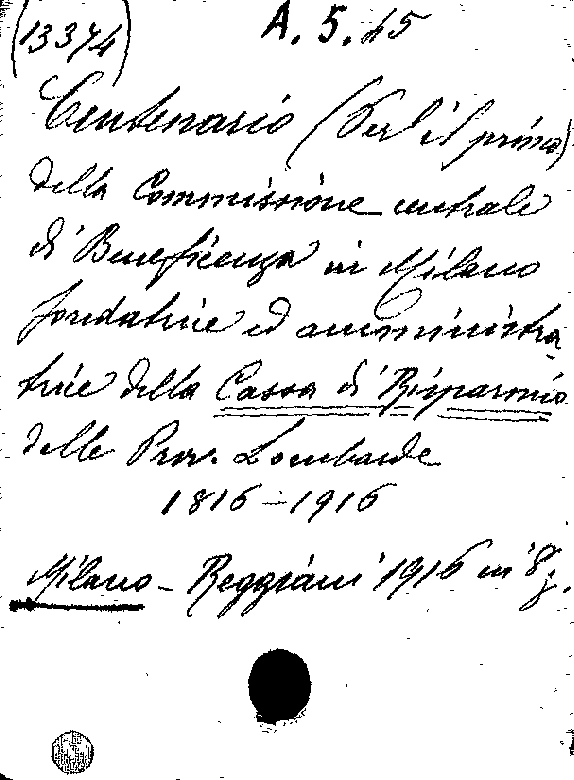 (13374)
A. 5. 45
Centenario (Per il primo)
della Commissione centrale
di Beneficenza in Milano
fondatrice ed amministra
trice della Cassa di Risparmio
delle Prov. Lombarde
1816-1916
Milano - Reggiani 1916 in 8.